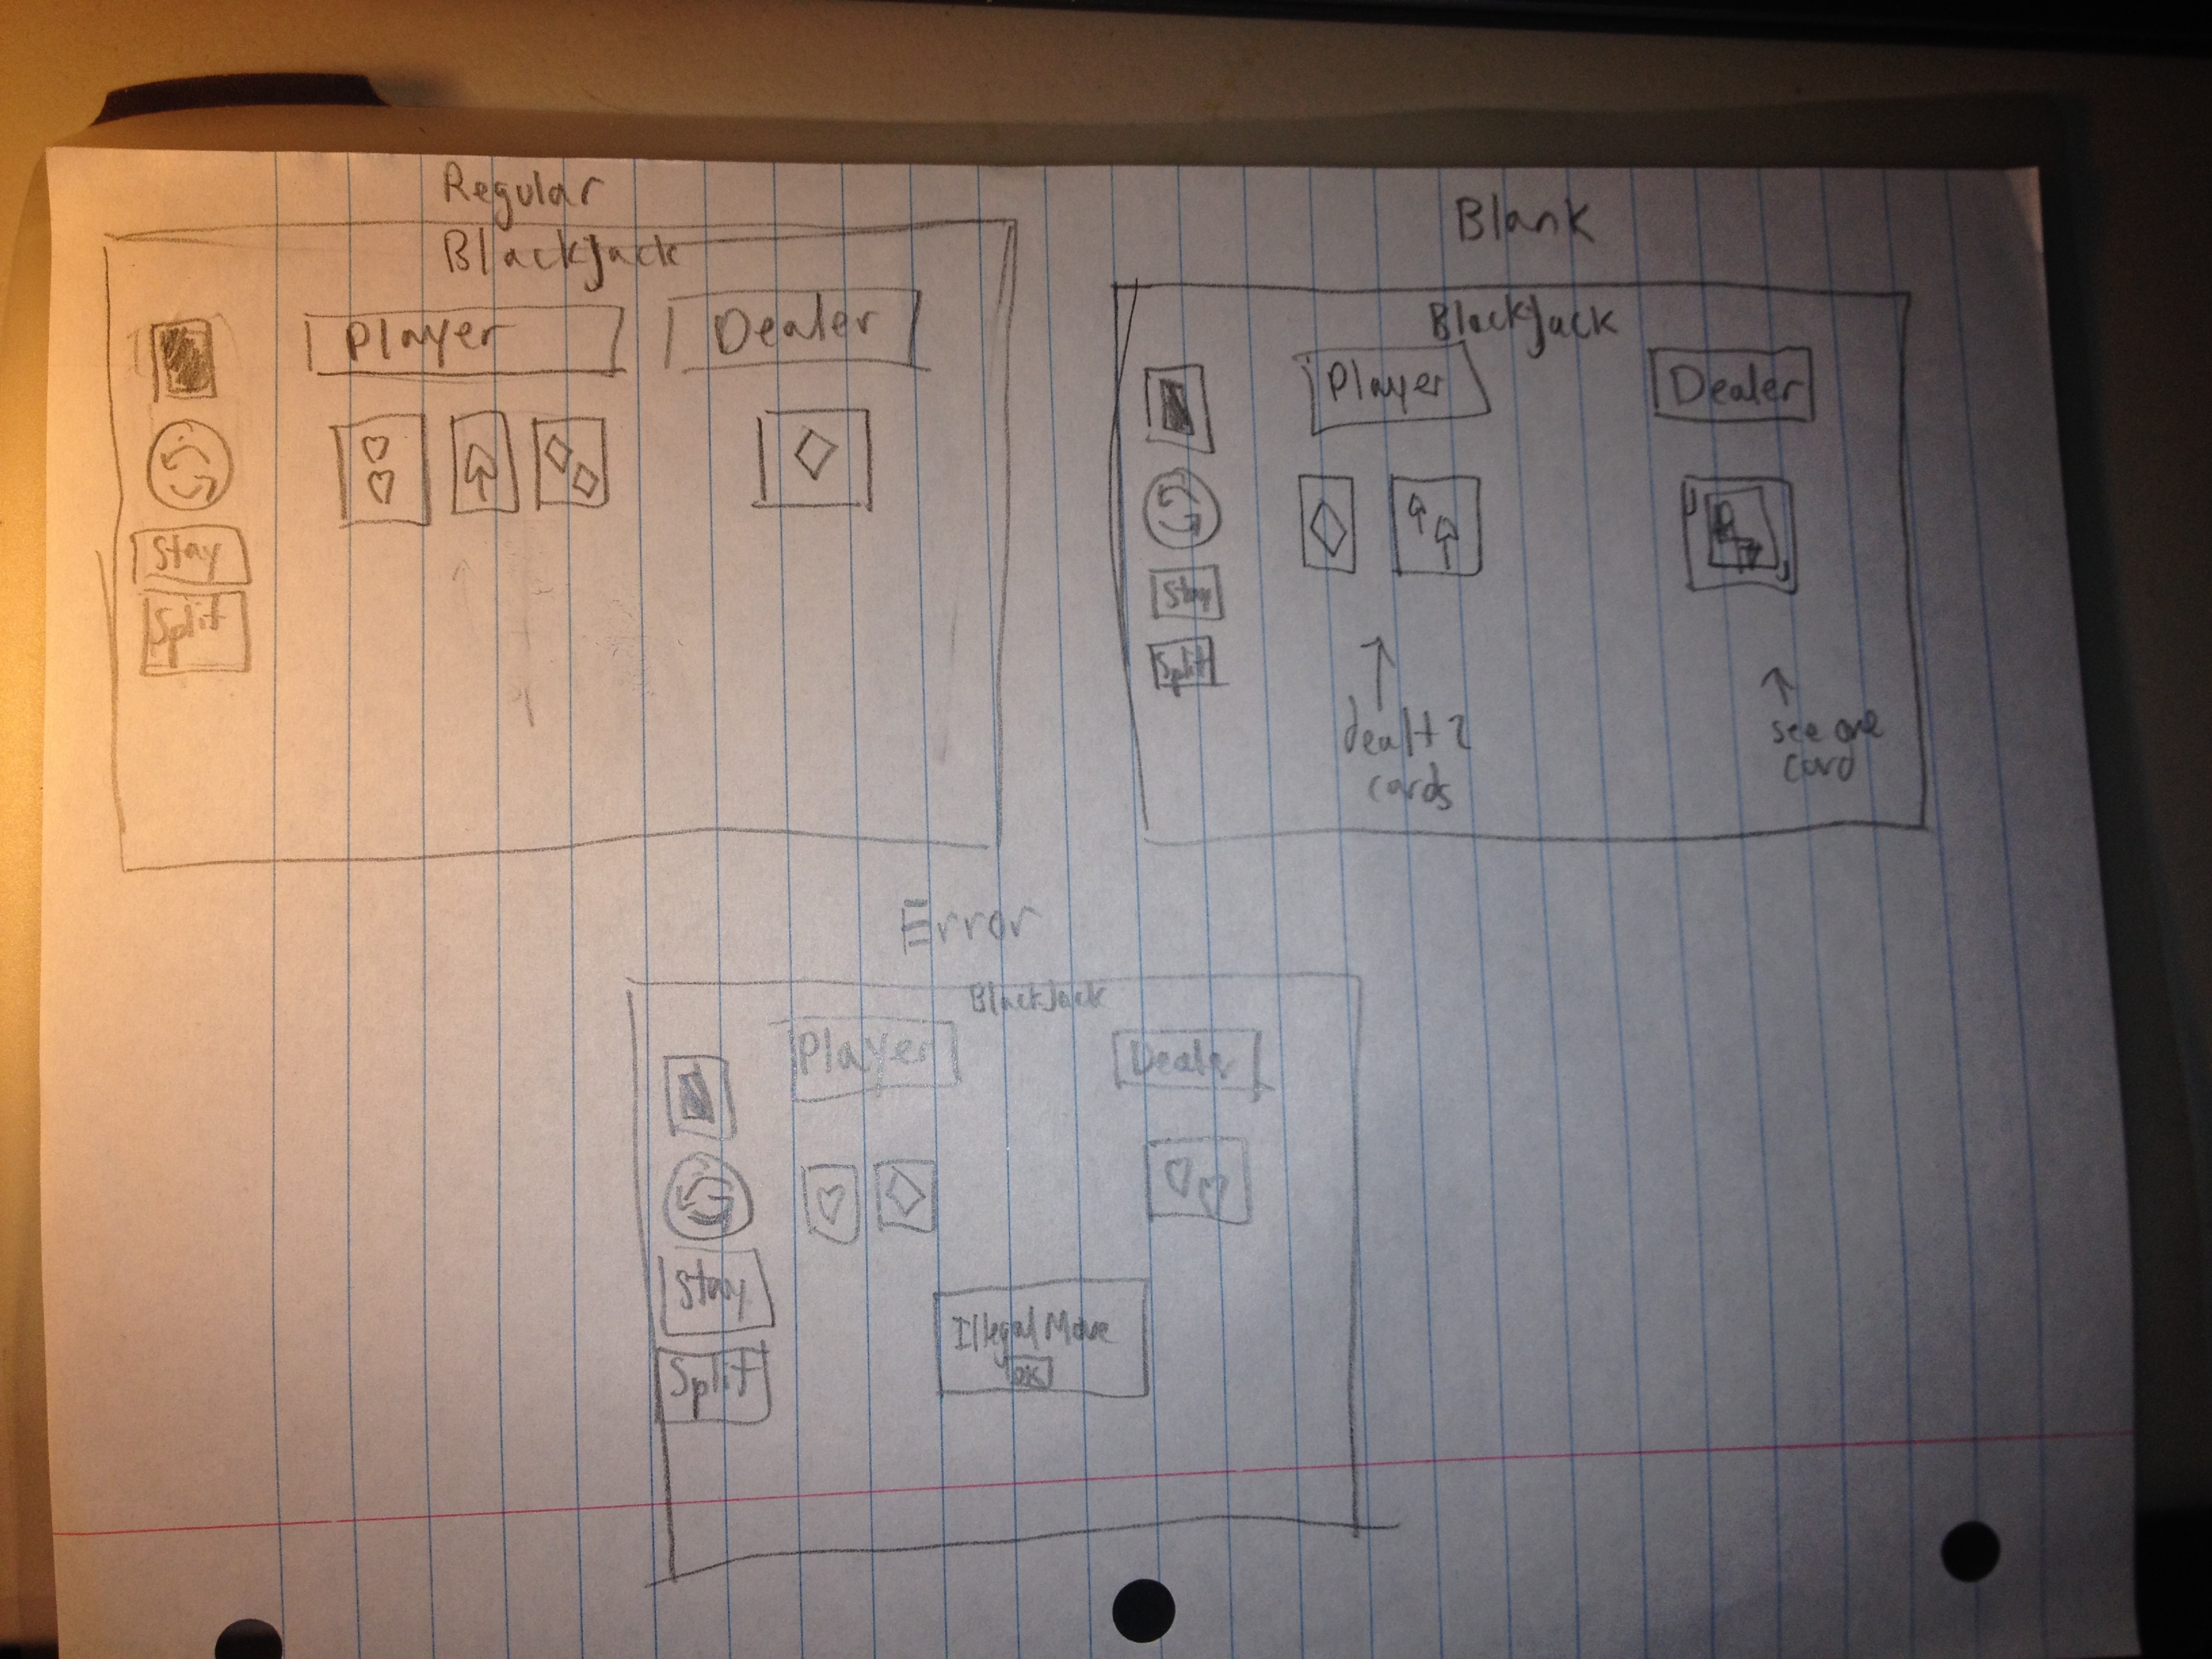 Regular
BlackJack
Player
Dealer
Stay
Split
Blank
BlackJack
Player
Dealer
Stay
Split
dealt 2
cards
see one
card
Error
BlackJack
Player
Dealer
Stay
Split
Illegal Move
OK